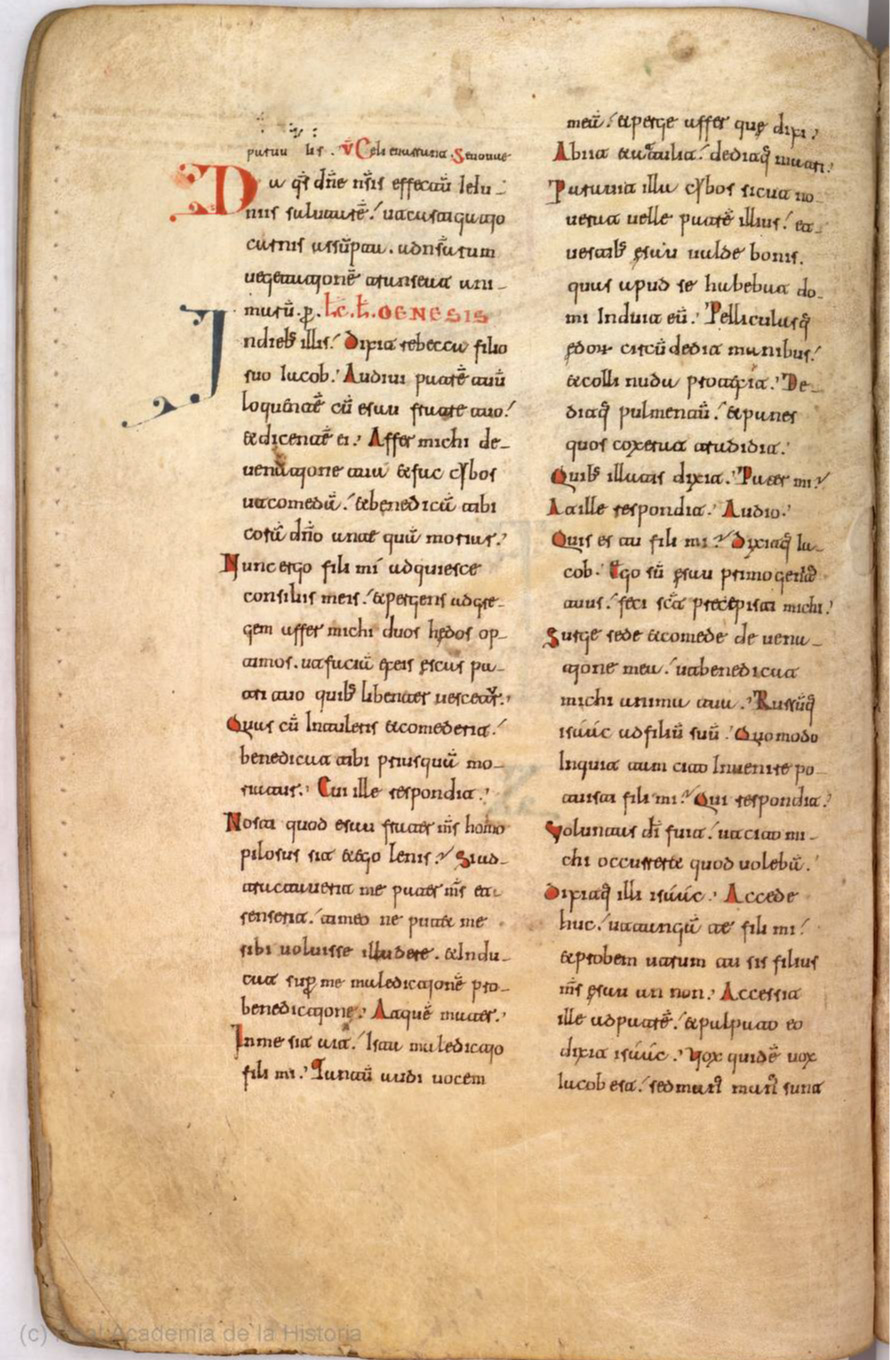 v̄ Celi enarrant. S
Da q̄s dn̄e nr̄is effectū Ieiu-
niis salutarē. ut castigatio
carnis assūpta. ad nr̄arum
uegetationē transeat ani-
marū. p̱. Lc̄. Ł. GENESIS
In dieb; illis. Dixit rebecca filio
suo Iacob. Audiui patrē tuū
loquentē cū esau fratre tuo.
& dicentē ei. Affer michi de-
uenatione tua & fac cybos
ut comedā. & benedicā tibi
corā dn̄o ante quā moriar.
Nunc ergo fili mi adquiesce
consiliis meis. & pergens ad gre-
gem affer michi duos hędos op-
timos. ut faciā ex eis escas pa-
tri tuo quib; libenter uescatur.
Quas cū Intuleris & comederit.
benedicat tibi priusquā mo-
riatur. Cui ille respondit.
Nosti quod esau frater m̄s homo
pilosus sit & ego lenis. Si ad-
trectauerit me pater m̄s et
senserit. timeo ne putet me
sibi uoluisse illudere. & Indu-
cat sup̱ me maledictionē pro-
benedictione. At quē mater.
In me sit ait. Ista maledictio
fili mi. Tantū audi uocem
meā. & perge affer quę dixi.
Abiit & attulit. deditq; matri.
Parauit illa cybos sicut no-
uerat uelle patrē illius. et
uestib; esau ualde bonis.
quas apud se habebat do-
mi Induit eū. Pelliculasq;
ędorū circūdedit manibus.
& colli nuda protexit. De-
ditq; pulmentū. & panes
quos coxerat tradidit.
Quib; illatis dixit. Pater mi.
At ille respondit. Audio.
Quis es tu fili mi. Dixitq; Ia-
cob. Ego sū esau primogenitus
tuus. feci sic̄ precepisti michi.
Surge sede & comede de uena-
tione mea. ut benedicat
michi anima tua. Rursūq;
isáác ad filiū suū. Quomodo
Inquit tam cito Inuenire po-
tuisti fili mi. Qui respondit.
Voluntas dī fuit. ut cito mi-
chi occurreret quod uolebā.
Dixitq; illi isáác. Accede
huc. ut tangā te fili mi.
& probem utrum tu sis filius
m̄s esau an non. Accessit
ille ad patrē. & palpato eo
dixit isáác. Vox quidē uox
Iacob est. sed manus manus sunt